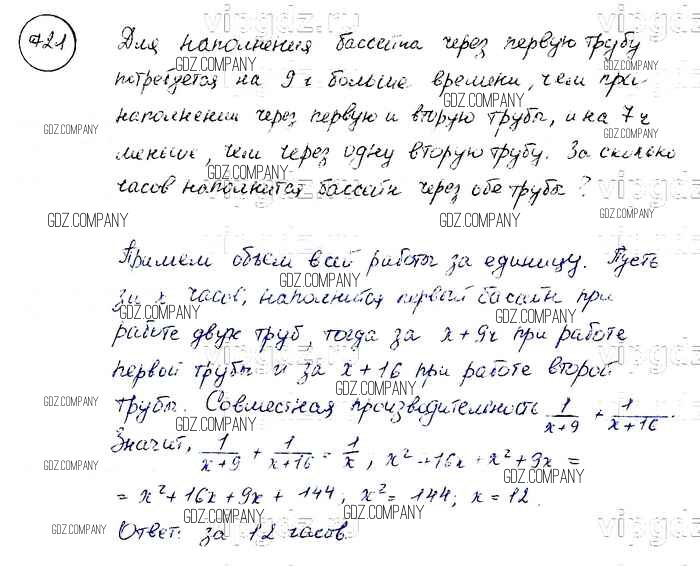 721
Для наполнения бассейна через первую трубу
потребуется на 9 ч больше времени, чем при
наполнении через первую и вторую трубы, и на 7 ч
меньше, чем через одну вторую трубу. За сколько
часов наполнится бассейн через обе трубы?
Примем объем всей работы за единицу. Пусть
за x часов, наполнится первый басайн при
работе двух труб, тогда за x+9ч при работе
первой трубы и за x+16 при работе второй
трубы. Совместная производительность 1/(x+9) + 1/(x+16).
Значит, 1/(x+9) + 1/(x+16) = 1/x, x²+16x+x²+9x =
= x²+16x+9x+144, x²=144; x=12.
Ответ: за 12 часов.
GDZ.COMPANY
vipgdz.ru